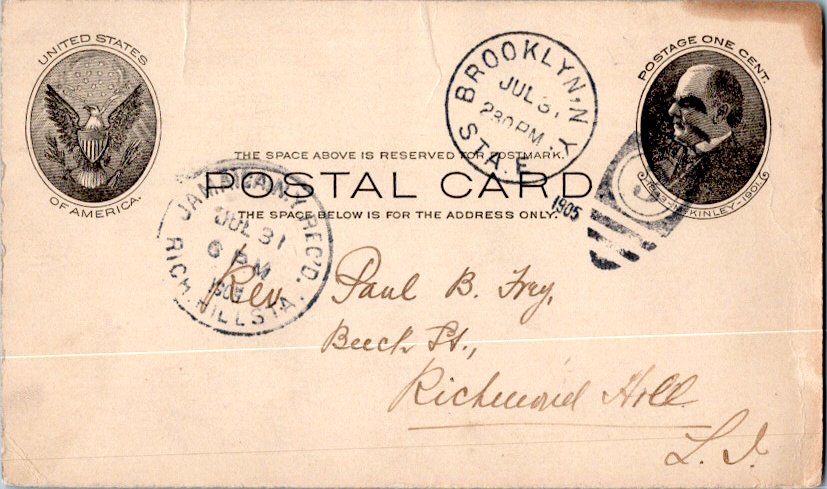 UNITED STATES
OF AMERICA.
BROOKLYN, N.Y.
JUL 31
2 30 PM
STA. E.
1905
POSTAGE ONE CENT.
McKINLEY-1901.
THE SPACE ABOVE IS RESERVED FOR POSTMARK.
POSTAL CARD
THE SPACE BELOW IS FOR THE ADDRESS ONLY.
JAMAICA, N.Y. REC'D.
JUL 31
6 PM
1905
RICH. HILL STA.
Rev. Paul B. Frey,
Beech St.,
Richmond Hill
L. I.